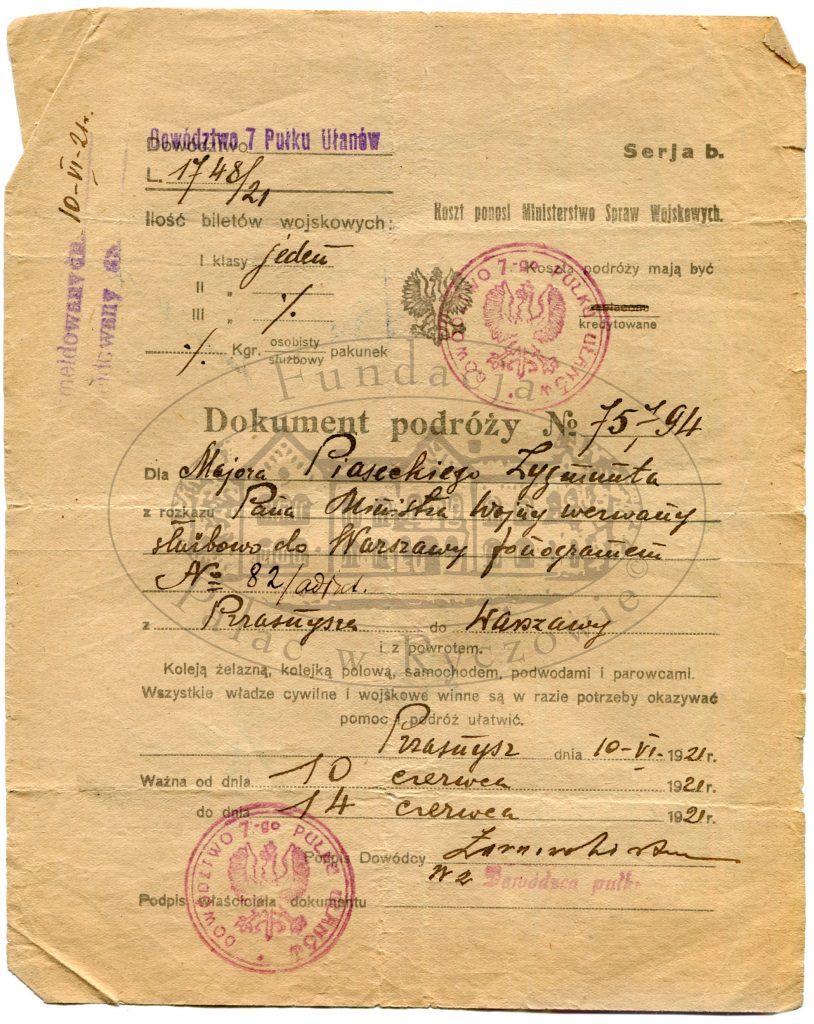 Dowództwo 7 Pułku Ułanów
Dowództwo
L. 1748/21
Serja b.
Ilość biletów wojskowych:
Koszt ponosi Ministerstwo Spraw Wojskowych.
I klasy jeden
II „
III „ %
Koszta podróży mają być
zapłacone
kredytowane
% Kgr. osobisty
służbowy pakunek
DOWÓDZTWO 7-go PUŁKU UŁANÓW
10-VI-21r.
Fundacja
Pałac w Ryczowie©
Dokument podróży № 75794
Dla Majora Piaseckiego Zygmunta
z rozkazu Pana Ministra Wojny wezwany
służbowo do Warszawy fonogramem
№ 82/adjut.
z Przasnysza do Warszawy
i z powrotem.
Koleją żelazną, kolejką polową, samochodem, podwodami i parowcami.
Wszystkie władze cywilne i wojskowe winne są w razie potrzeby okazywać
pomoc i podróż ułatwić.
Przasnysz dnia 10-VI-1921r.
Ważna od dnia 10 czerwca 1921r.
do dnia 14 czerwca 1921r.
Podpis Dowódcy
Dowódca pułk.
Podpis właściciela dokumentu
DOWÓDZTWO 7-go PUŁKU UŁANÓW